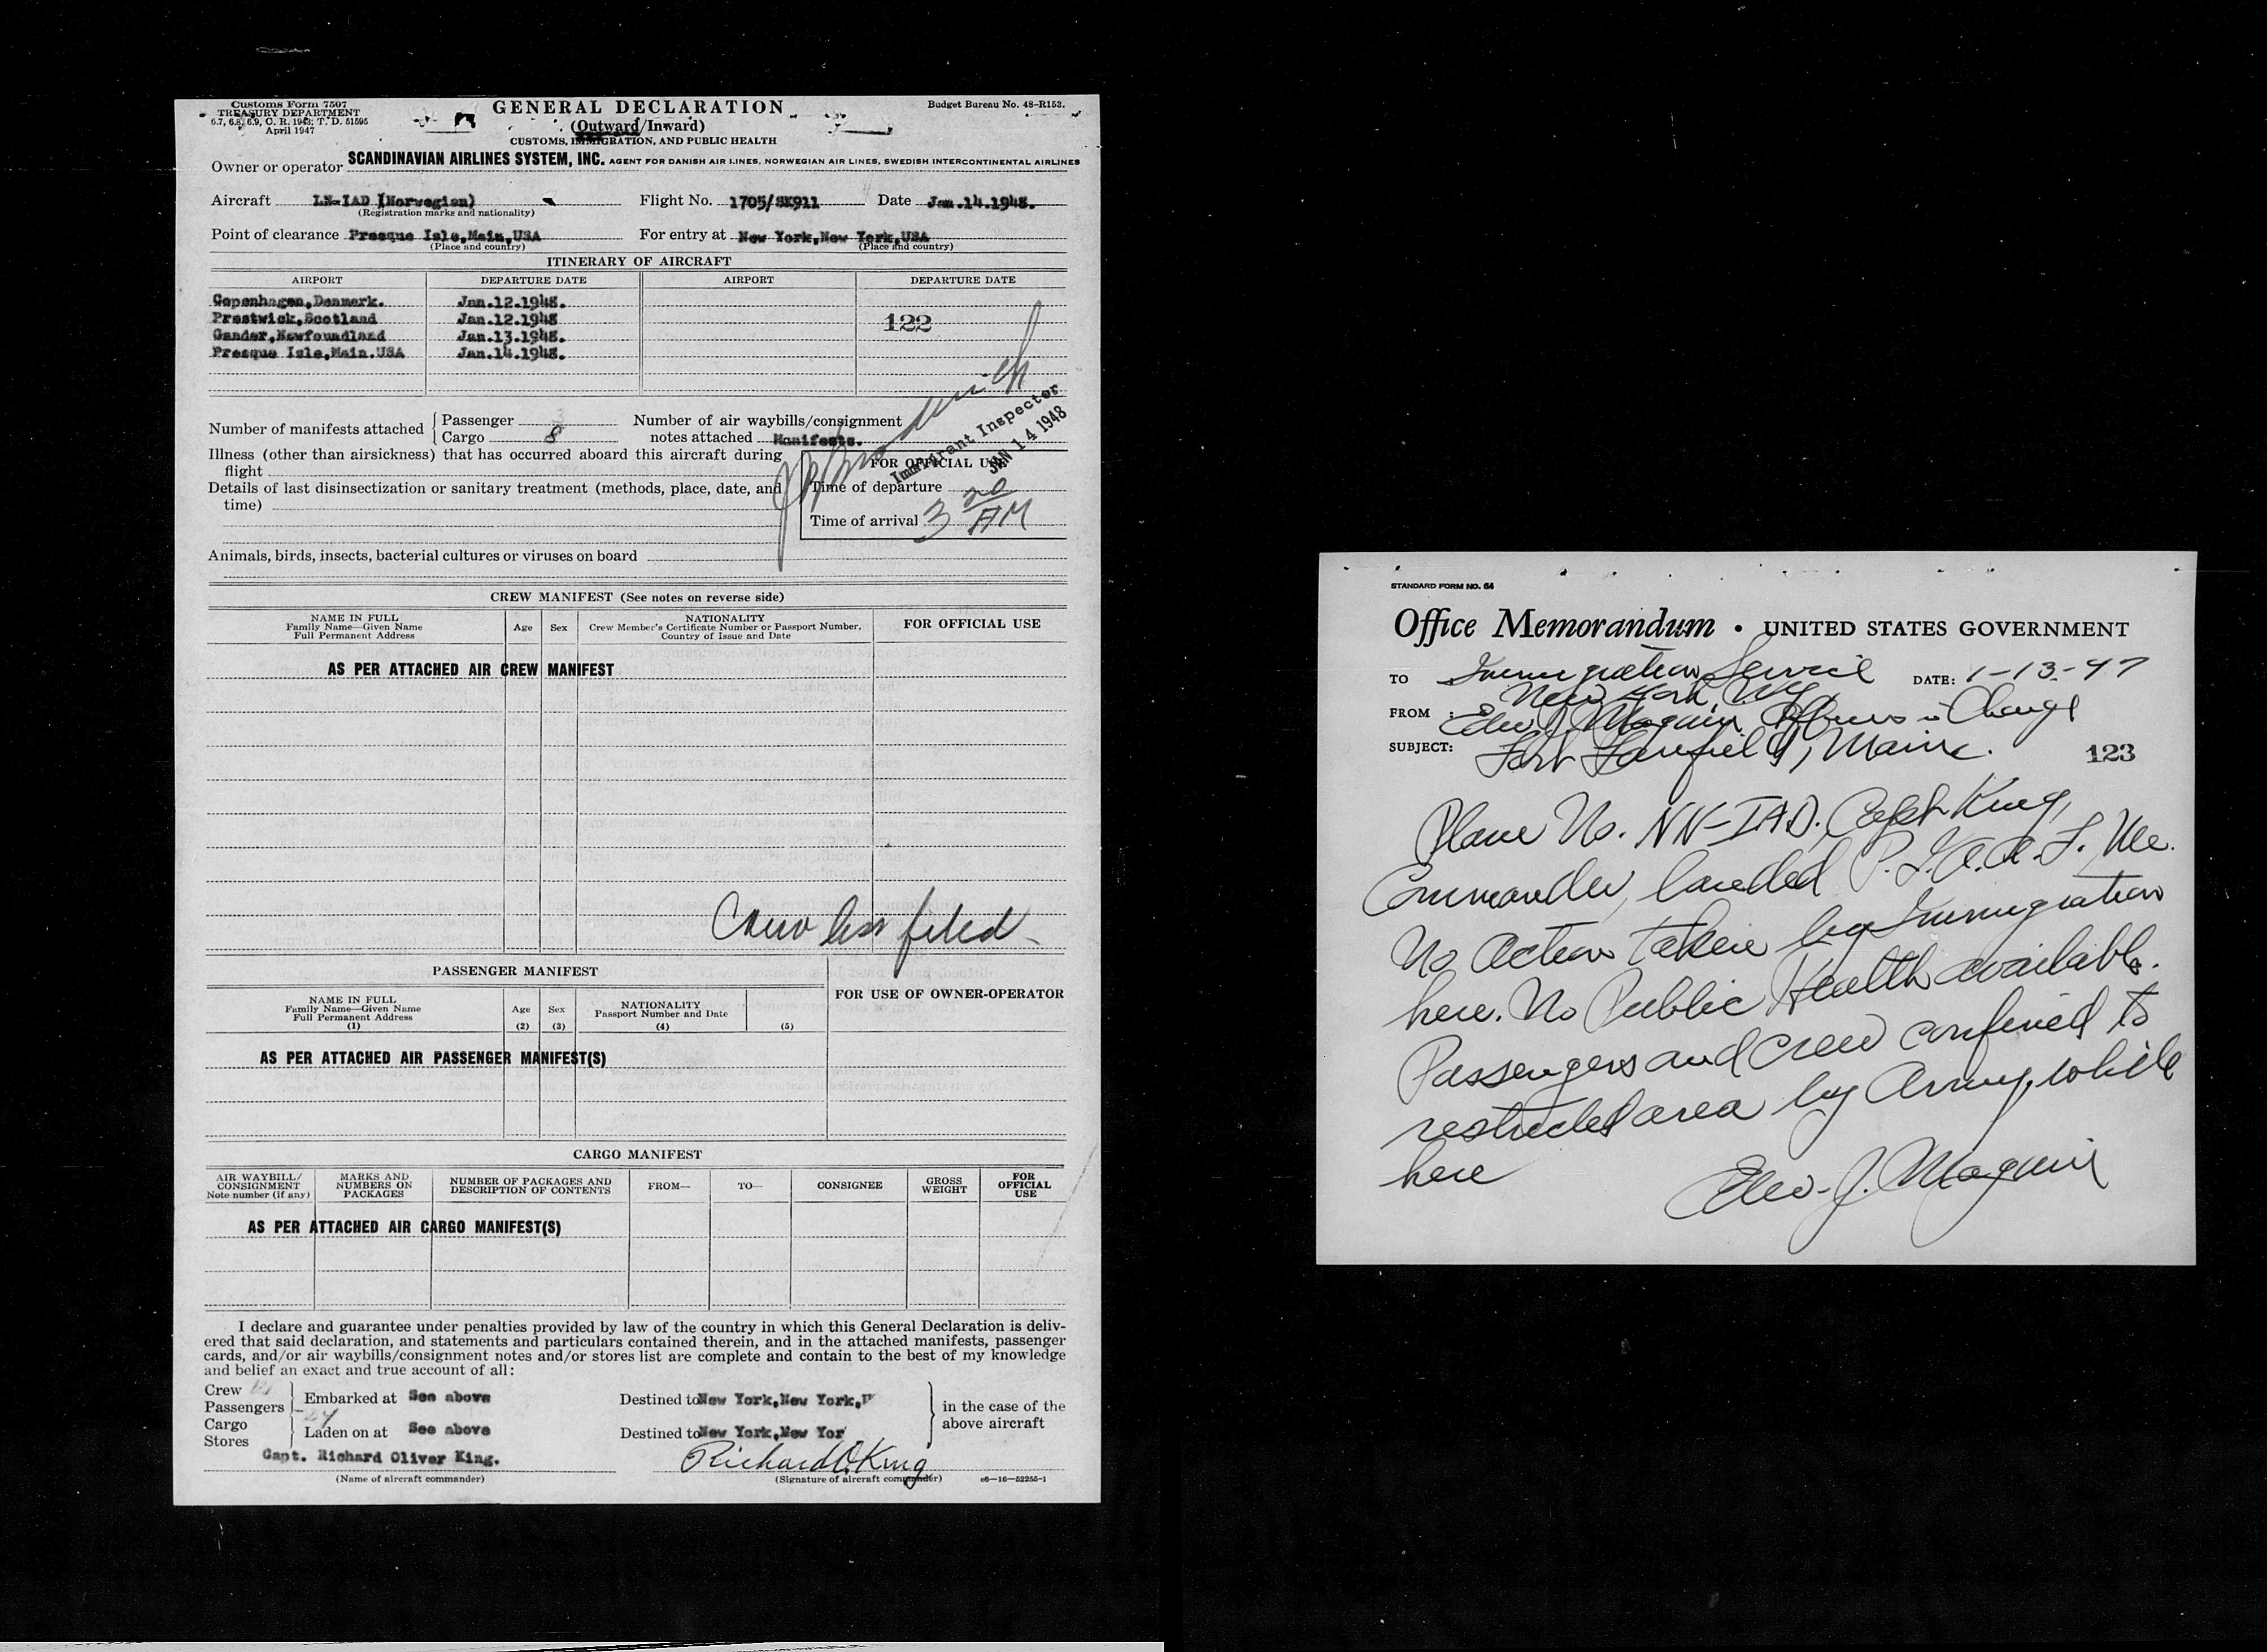 Customs Form 7507
TREASURY DEPARTMENT
6.7, 6.8, 6.9, C. R. 1943; T. D. 51595
April 1947
GENERAL DECLARATION
(Outward/Inward)
CUSTOMS, IMMIGRATION, AND PUBLIC HEALTH
Budget Bureau No. 48-R153.
Owner or operator SCANDINAVIAN AIRLINES SYSTEM, INC. AGENT FOR DANISH AIR LINES, NORWEGIAN AIR LINES, SWEDISH INTERCONTINENTAL AIRLINES
Aircraft LN-IAD (Norwegian) Flight No. 1705/SK911 Date Jan.14.1948.
(Registration marks and nationality)
Point of clearance Presque Isle,Main,USA For entry at New York,New York,USA
(Place and country) (Place and country)
ITINERARY OF AIRCRAFT
AIRPORT DEPARTURE DATE AIRPORT DEPARTURE DATE
Copenhagen,Denmark. Jan.12.1948.
Prestwick,Scotland Jan.12.1948 122
Gander,Newfoundland Jan.13.1948.
Presque Isle,Main.USA Jan.14.1948.
Immigrant Inspector
JAN 14 1948
Number of manifests attached { Passenger
Cargo 8
Number of air waybills/consignment
notes attached Manifests.
Illness (other than airsickness) that has occurred aboard this aircraft during
flight
Details of last disinsectization or sanitary treatment (methods, place, date, and
time)
FOR OFFICIAL USE
Time of departure
Time of arrival 3 20 AM
Animals, birds, insects, bacterial cultures or viruses on board
CREW MANIFEST (See notes on reverse side)
NAME IN FULL
Family Name—Given Name
Full Permanent Address
Age
Sex
NATIONALITY
Crew Member's Certificate Number or Passport Number,
Country of Issue and Date
FOR OFFICIAL USE
AS PER ATTACHED AIR CREW MANIFEST
filed
PASSENGER MANIFEST
NAME IN FULL
Family Name—Given Name
Full Permanent Address
(1)
Age
(2)
Sex
(3)
NATIONALITY
Passport Number and Date
(4)
(5)
FOR USE OF OWNER-OPERATOR
AS PER ATTACHED AIR PASSENGER MANIFEST(S)
CARGO MANIFEST
AIR WAYBILL/
CONSIGNMENT
Note number (if any)
MARKS AND
NUMBERS ON
PACKAGES
NUMBER OF PACKAGES AND
DESCRIPTION OF CONTENTS
FROM—
TO—
CONSIGNEE
GROSS
WEIGHT
FOR
OFFICIAL
USE
AS PER ATTACHED AIR CARGO MANIFEST(S)
I declare and guarantee under penalties provided by law of the country in which this General Declaration is deliv-
ered that said declaration, and statements and particulars contained therein, and in the attached manifests, passenger
cards, and/or air waybills/consignment notes and/or stores list are complete and contain to the best of my knowledge
and belief an exact and true account of all:
Crew
Passengers 24
Cargo
Stores
Embarked at See above Destined to New York,New York,
Laden on at See above Destined to New York,New Yor
in the case of the
above aircraft
Capt. Richard Oliver King. Richard O. King
(Name of aircraft commander) (Signature of aircraft commander) c6—16—52255-1
STANDARD FORM NO. 64
Office Memorandum • UNITED STATES GOVERNMENT
TO Immigration Service DATE: 1-13-47
New York, NY
FROM : Edw. J. Maguire, Officer in Charge
SUBJECT: Fort Fairfield, Maine.
123
Plane No. NN-IAD. Capt King,
Commander, landed P.I.A.A.F. Me.
No action taken by Immigration
here. No Public Health available.
Passengers and crew confined to
restricted area by Army, while
here
Edw. J. Maguire